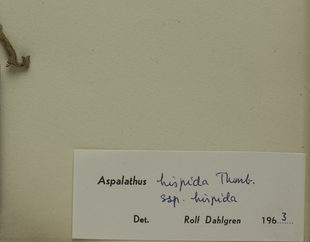 Aspalathus hispida Thunb.
ssp. hispida
Det. Rolf Dahlgren 1963